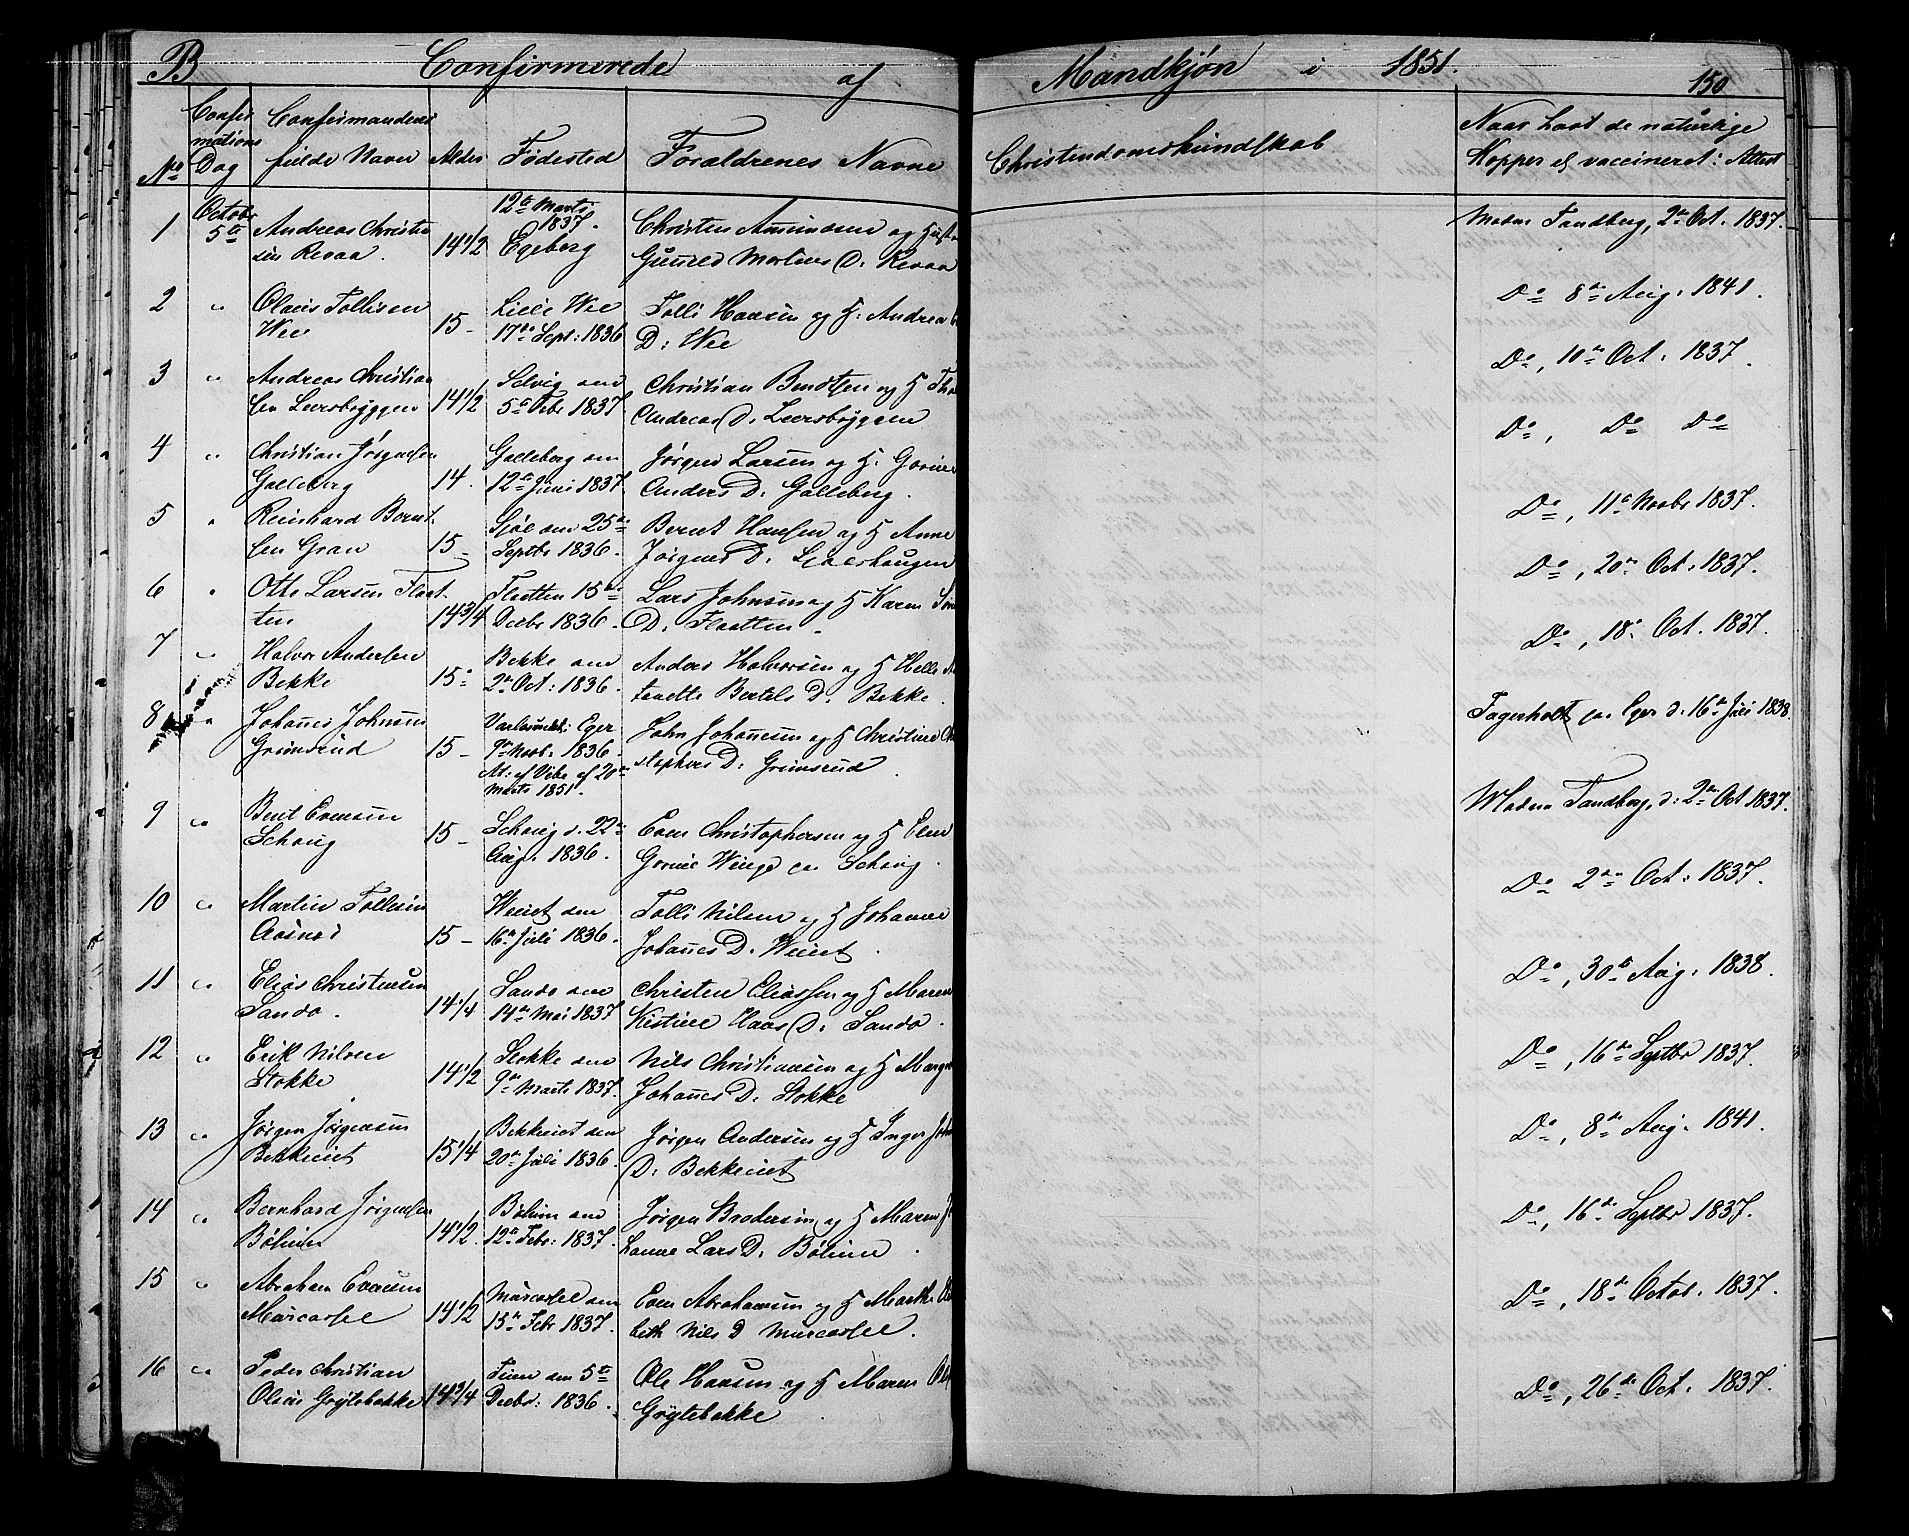 B Confirmerede af Mandkjøn i 1851. 150
No Confirmations Dag Confirmandens fulde Navn Alder Fødested Forældrenes Navne Christendomskundskab Naar havt de naturlige Kopper el vaccineret: Attest
1 Octobr 5te Andreas Christensen Revaa. 14 1/2 12te Marts 1837. Egeberg Christen Amundsen og Gunild Mortens D. Revaa Madm Tandberg, 2den Oct. 1837.
2 " Olaus Tollisen Wee 15 - Lille Wee 17de Sept: 1836 Tolli Hansen og H. Andrea D: Wee Do 8de Aug. 1841.
3 " Andreas Christiansen Leersbryggen 14 1/2 Selvig den 5te Febr 1837. Christian Bendtsen og H Andreas D. Leersbryggen Do, 10de Oct. 1837.
4 " Christian Jørgensen Galleberg 14. Galleberg den 12te Juni 1837. Jørgen Larsen og H. Gorine Anders D. Galleberg. Do, Do Do
5 " Reinhard Berntsen Gran 15 - den 25de Septbr 1836. Bernt Hansen og H Anne Jørgens D. Do, 11te Novbr 1837.
6 " Otto Larsen Flaatten 14 3/4 Flaatten 15de Decbr 1836. Lars Johnsen og H Karen D. Flaatten. Do, 20de Oct. 1837.
7 " Halvor Andersen Bekke 15 - Bekke den 2den Oct: 1836. Anders Halvorsen og H Helle Bertels D. Bekke. Do, 18de Oct. 1837.
8 " Johanes Johnsen Grimsrud 15 - Eger 9de Novbr. 1836. At: af Vibe af 20de Marts 1851. John Johanesen og H Christine Christophers D. Grimsrud Fagerholt paa Eger d: 16de Juli 1838.
9 " Bent Evensen Schoug 15 - Schoug d. 22de Aug. 1836. Even Christophersen og H Elen Gorine Winge paa Schoug. Madm Tandberg d: 2den Oct 1837.
10 " Martin Tollisen Aasnes 15 - Weiet den 16de Juli 1836. Tolli Nilsen og H Johanne Johanes D. Weiet. Do 2den Oct: 1837.
11 " Elias Christensen Sando. 14 1/4 Sando den 14de Mai 1837. Christen Eliassen og H Maren Kistine Haas D. Sando. Do, 30te Aug. 1838.
12 " Erik Nilsen Stokke 14 1/2 Stokke den 9de Marts 1837. Nils Christiansen og H Johanes D. Stokke Do, 16de Septbr 1837.
13 " Jørgen Jørgensen Bekkeiet 15 1/4 Bekkeiet den 20de Juli 1836. Jørgen Andersen og H Inger D: Bekkeiet Do, 8de Aug. 1841.
14 " Bernhard Jørgensen Bølum 14 1/2. Bølum den 12te Febr: 1837. Jørgen Brodersen og H Maren Lars D. Bølum. Do, 16de Septbr 1837.
15 " Abraham Evensen Marcassee 14 1/2 Marcassee den 15de Febr 1837. Even Abrahamsen og H Nils D Marcassee. Do, 18de Octob. 1837.
16 " Peder Christian Olsen Grytebakke 14 3/4 den 5te Decbr: 1836. Ole Hansen og H Maren Grytebakke Do, 26de Oct. 1837.